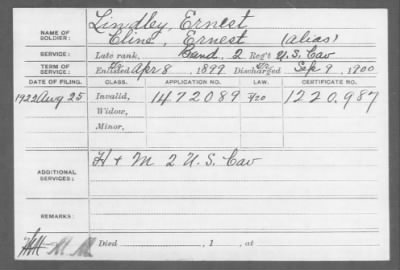 Lindley, Ernest
NAME OF SOLDIER: Cline, Ernest (alias)
SERVICE: Late rank, Band, 2 Reg't U.S. Cav
TERM OF SERVICE: Enlisted Apr 8, 1899 Discharged Sep 9, 1900
DATE OF FILING. CLASS. APPLICATION NO. LAW. CERTIFICATE NO.
1922 Aug 25 Invalid, 1472089 1220.987
Widow,
Minor,
ADDITIONAL SERVICES: H + M 2 U.S. Cav
REMARKS:
Died , 1 , at